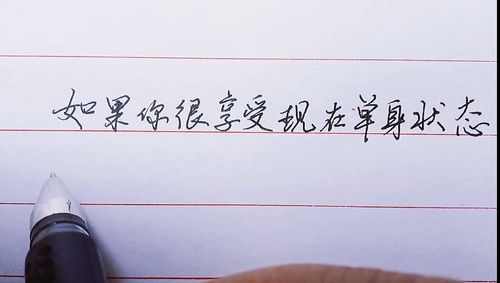 如果你很享受现在单身状态